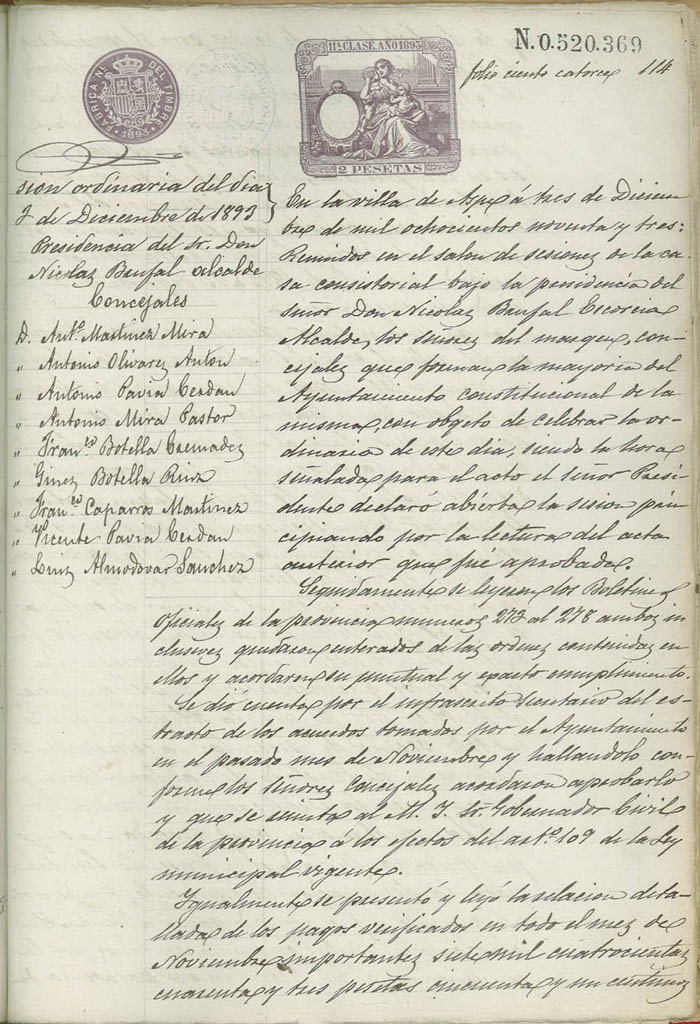 N.0.520.369
folio ciento catorce 114
FABRICA Nl. DEL TIMBRE
1893
11ª CLASE. AÑO 1893
2 PESETAS
sion ordinaria del dia
3 de Diciembre de 1893
Presidencia del Sr. Don
Nicolaz Benfal Alcalde
Concejales
D. Antº. Martinez Mira
" Antonio Olivarez Anton
" Antonio Pavia Cerdan
" Antonio Mira Pastor
" Franco. Botella Cremadez
" Ginez Botella Ruiz
" Franco. Caparros Martinez
" Vicente Pavia Cerdan
" Luiz Almodovar Sanchez
En la villa de Aspe á tres de Diciem-
bre de mil ochocientos noventa y tres:
Reunidos en el salon de sesionez de la ca-
sa consistorial bajo la presidencia del
señor Don Nicolaz Benfal Escorcia
Alcalde, los señorez del margen, con-
cejalez que forman la mayoria del
Ayuntamiento constitucional de la
misma, con objeto de celebrar la or-
dinaria de este dia, siendo la hora
señalada para el acto el señor Presi-
dente declaró abierta la sesion prin-
cipiando por la lectura del acta
anterior que fué aprobada.
Seguidamente se leyeron los Boletinez
oficialez de la provincia numeros 273 al 278 ambos in
clusivez quedaron enterados de laz ordenez contenidaz en
ellos y acordaron su puntual y exacto cumplimiento.
Se dió cuenta por el infrascrito Secretario del es-
tracto de los acuerdos tomados por el Ayuntamiento
en el pasado mes de Noviembre y hallandolo con-
forme los señorez Concejalez acordaron aprobarlo
y que se remita al M. I. Sr. Gobernador Civil
de la provincia á los efectos del artº. 109 de la Ley
municipal vigente.
Igualmente se presentó y leyó la relacion deta-
llada de los pagos verificados en todo el mez de
Noviembre importantez siete mil cuatrocientaz
cuarenta y tres pesetas cincuenta y un centimos